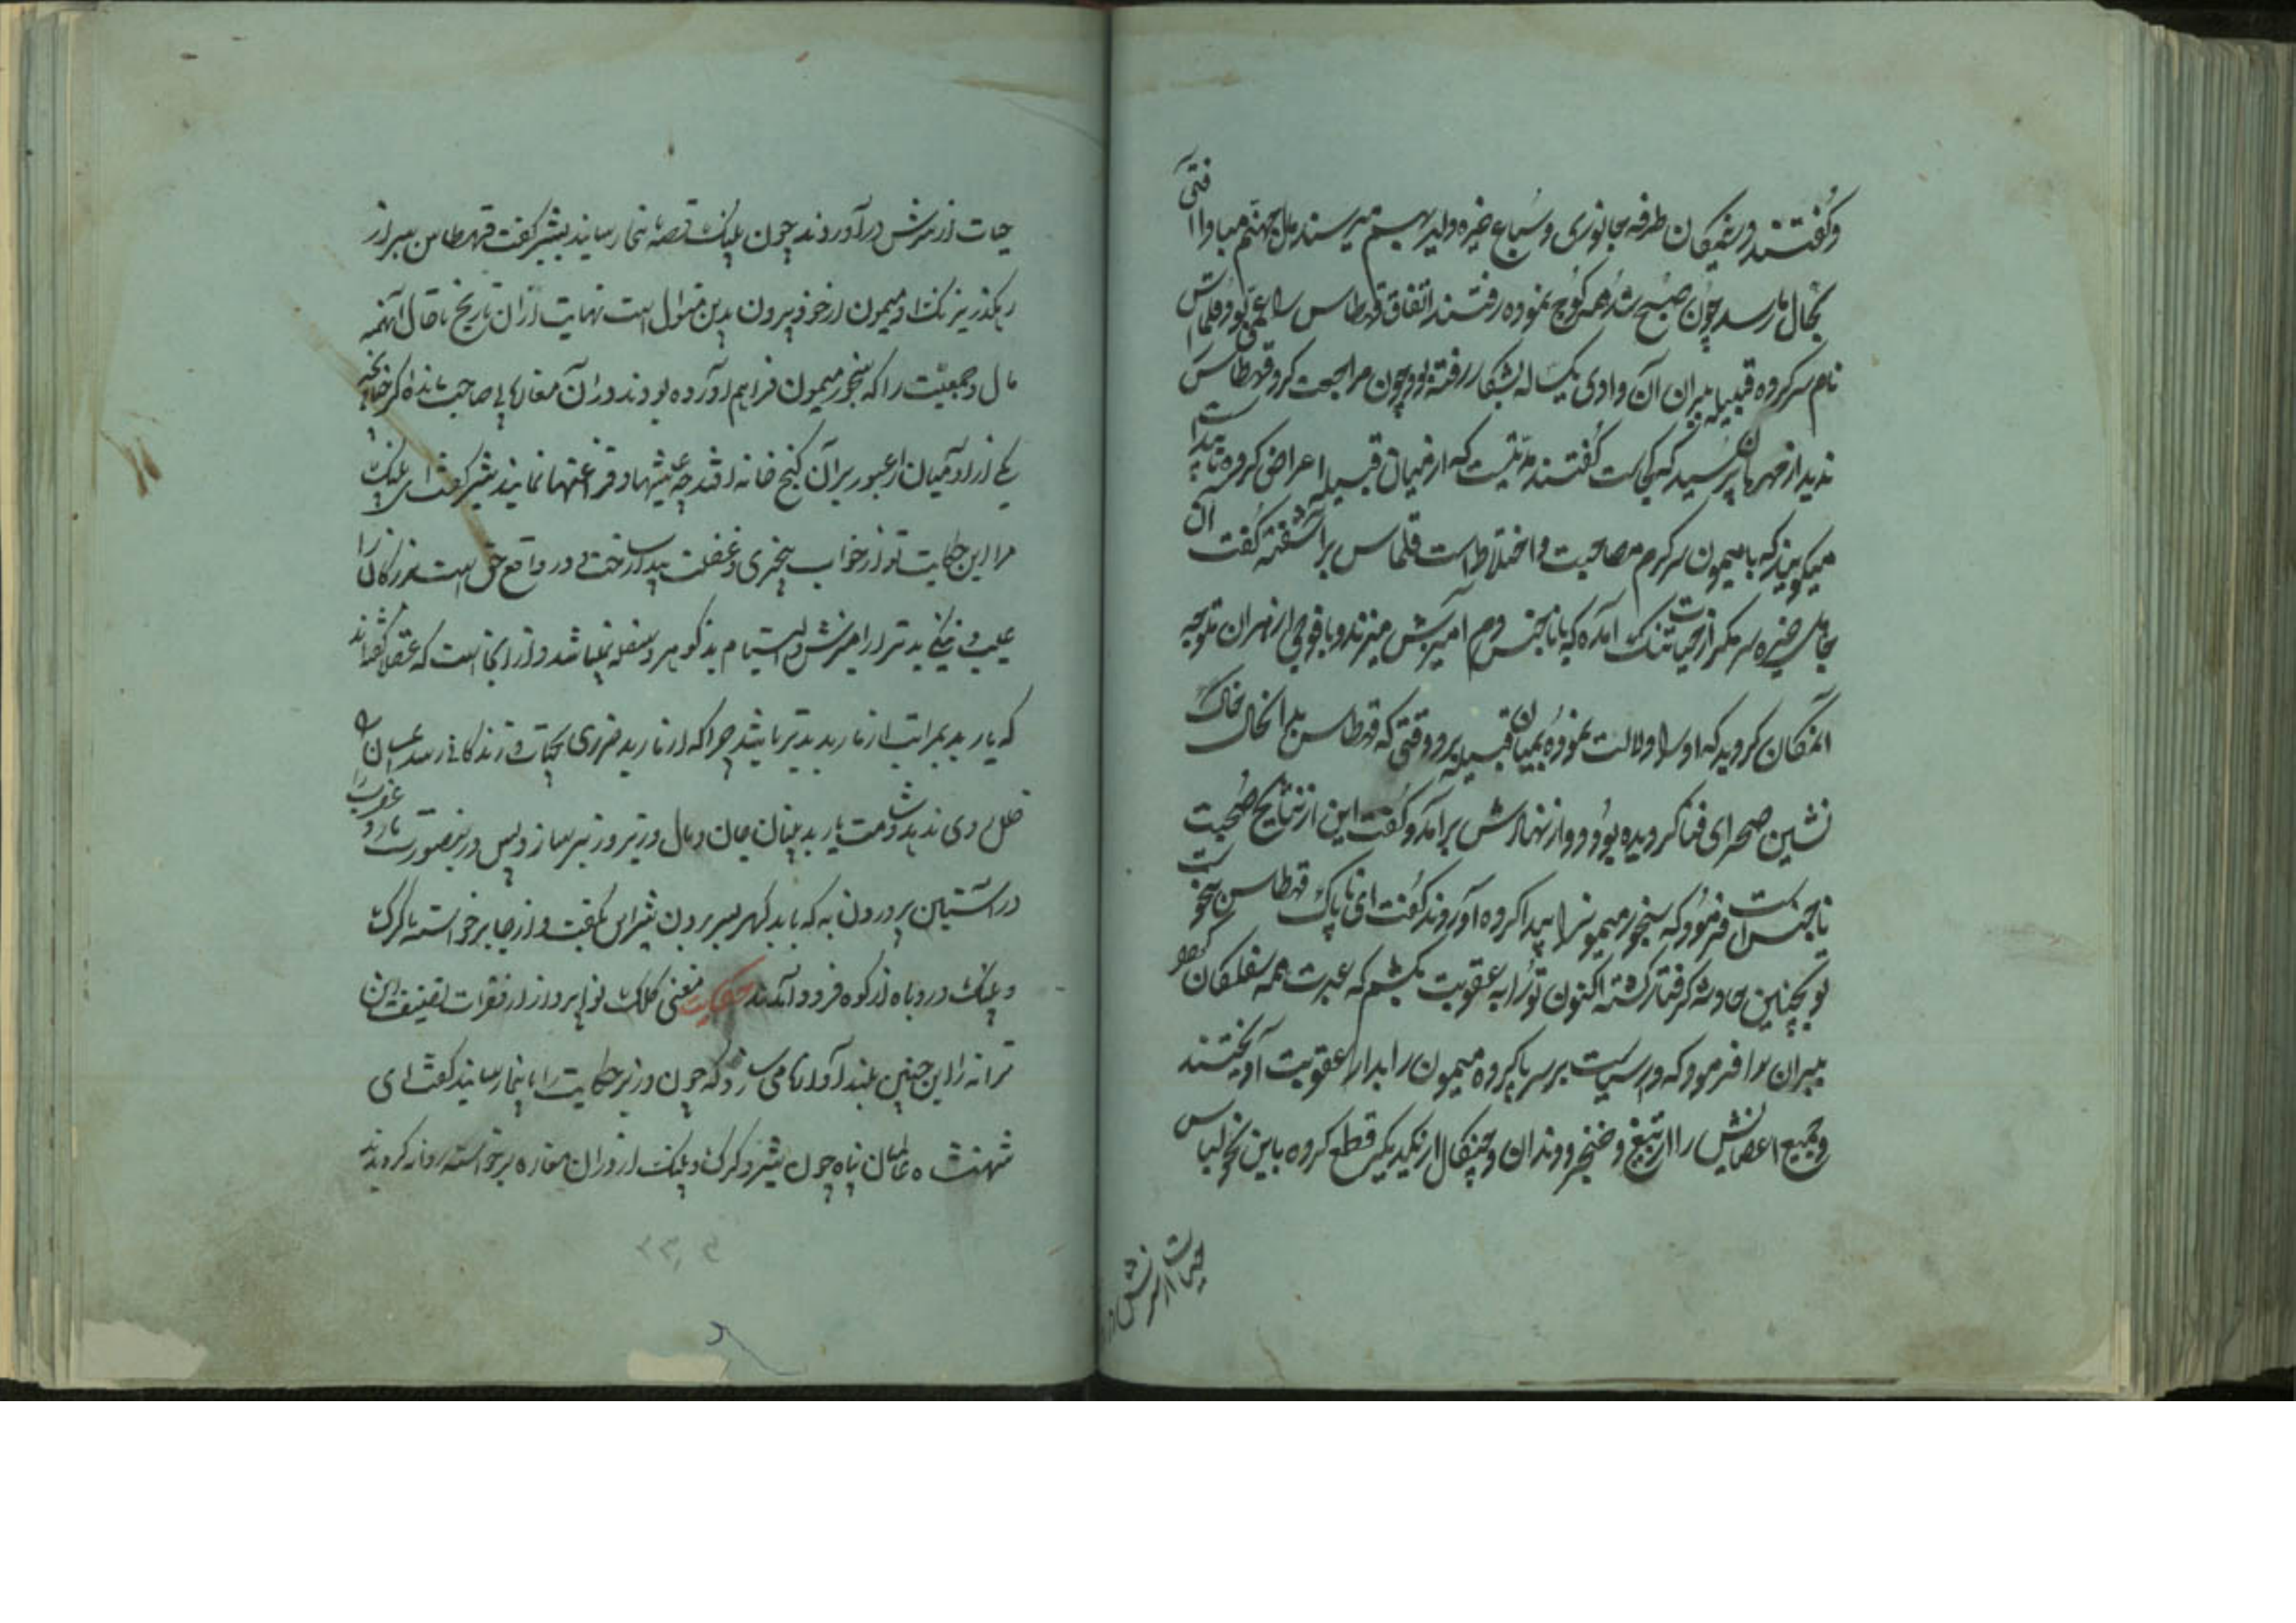 و گفتند درین مکان طرفه جانوری و سباع خیره دلیر بهم میرسند مبادا آفتی
بحال ما رسد چون صبح شد همه کوچ نموده رفتند اتفاقا قهرطاس را عمی بود قلماس
نام سرکرده قبیله ببران آن وادی یک ساله بشکار رفته بود چون مراجعت کرد قهرطاس
ندید از مهربان پرسید که کجاست گفتند مدتیست که از میان قبیله اعراض کرده ناپیداست
میگویند که با میمون سرگرم مصاحبت و اختلاط است قلماس برآشفته گفت آن
جاهل خیره سر مگر از حیات تنگ آمده که با ناجنس دم آمیزش میزند و با فوجی از ببران متوجه
آن مکان گردید که او را دلالت نموده بمیان قبیله برد وقتی که قهرطاس بخاک
نشین صحرای فنا گردیده بود دود از نهادش برآمد و گفت این از نتایج صحبت
ناجنس است فرمود که سنجور میمون را پیدا کرده آوردند گفت ای ناپاک قهرطاس
تو بچنین حادثه گرفتار گشته اکنون تو را به عقوبت بکشم که عبرت همه سفلگان
ببران را فرمود که در سیاست بر سر پا کرده میمون را بدار عقوبت آویختند
و جمیع اعضایش را از تیغ و خنجر دندان و چنگال از یکدیگر قطع کرده باین نحو لباس
حیات از سرش در
حیات از سرش درآوردند چون پلنگ قصه بنجار رسانید شیر گفت قهرطاس ببر از
رهگذر نیرنگ او میمون از خود بیرون بدین منوال است نهایت از آن تاریخ تا حال آنهمه
مال و جمعیت را که سنجور میمون فراهم آورده بودند در آن مغارها بی صاحب مانده اگر چنانچه
یکی از آدمیان را عبور بر آن گنج خانه افتد چه عیشها و فراغتها نمایند شیر گفت ای پلنگ
مرا این حکایت تو از خواب بیخبری و غفلت بیدار ساختی در واقع حق است بزرگان را
عیب و نقصی بدتر از آمیزش و التیام بدگوهر و سفله نمیباشد و از اینجا است که عقلا گفته‌اند
که یار بد بمراتب از مار بد بدتر باشد چرا که از مار بد ضرری بحیات و زندگانی رسد
خلل روی ندهد و شامت یار بد بنیان جان و مال و زیر و زبر سازد پس در اینصورت مار و عقرب را
در آستین پروردن به که با بدگهر بسر بردن شیر این بگفت و از جا برخواسته با گرگ
و پلنگ و روباه از کوه فرود آمدند حکایت مغنی کلک نواپرداز از فقرات تصنیف این
ترانه را این چنین بلند آوازه می سازد که چون وزیر حکایت را باینجا رسانید گفت ای
شهنشاه عالمیان پناه چون شیر و گرگ و پلنگ از در آن مغاره برخواسته روانه گردیدند